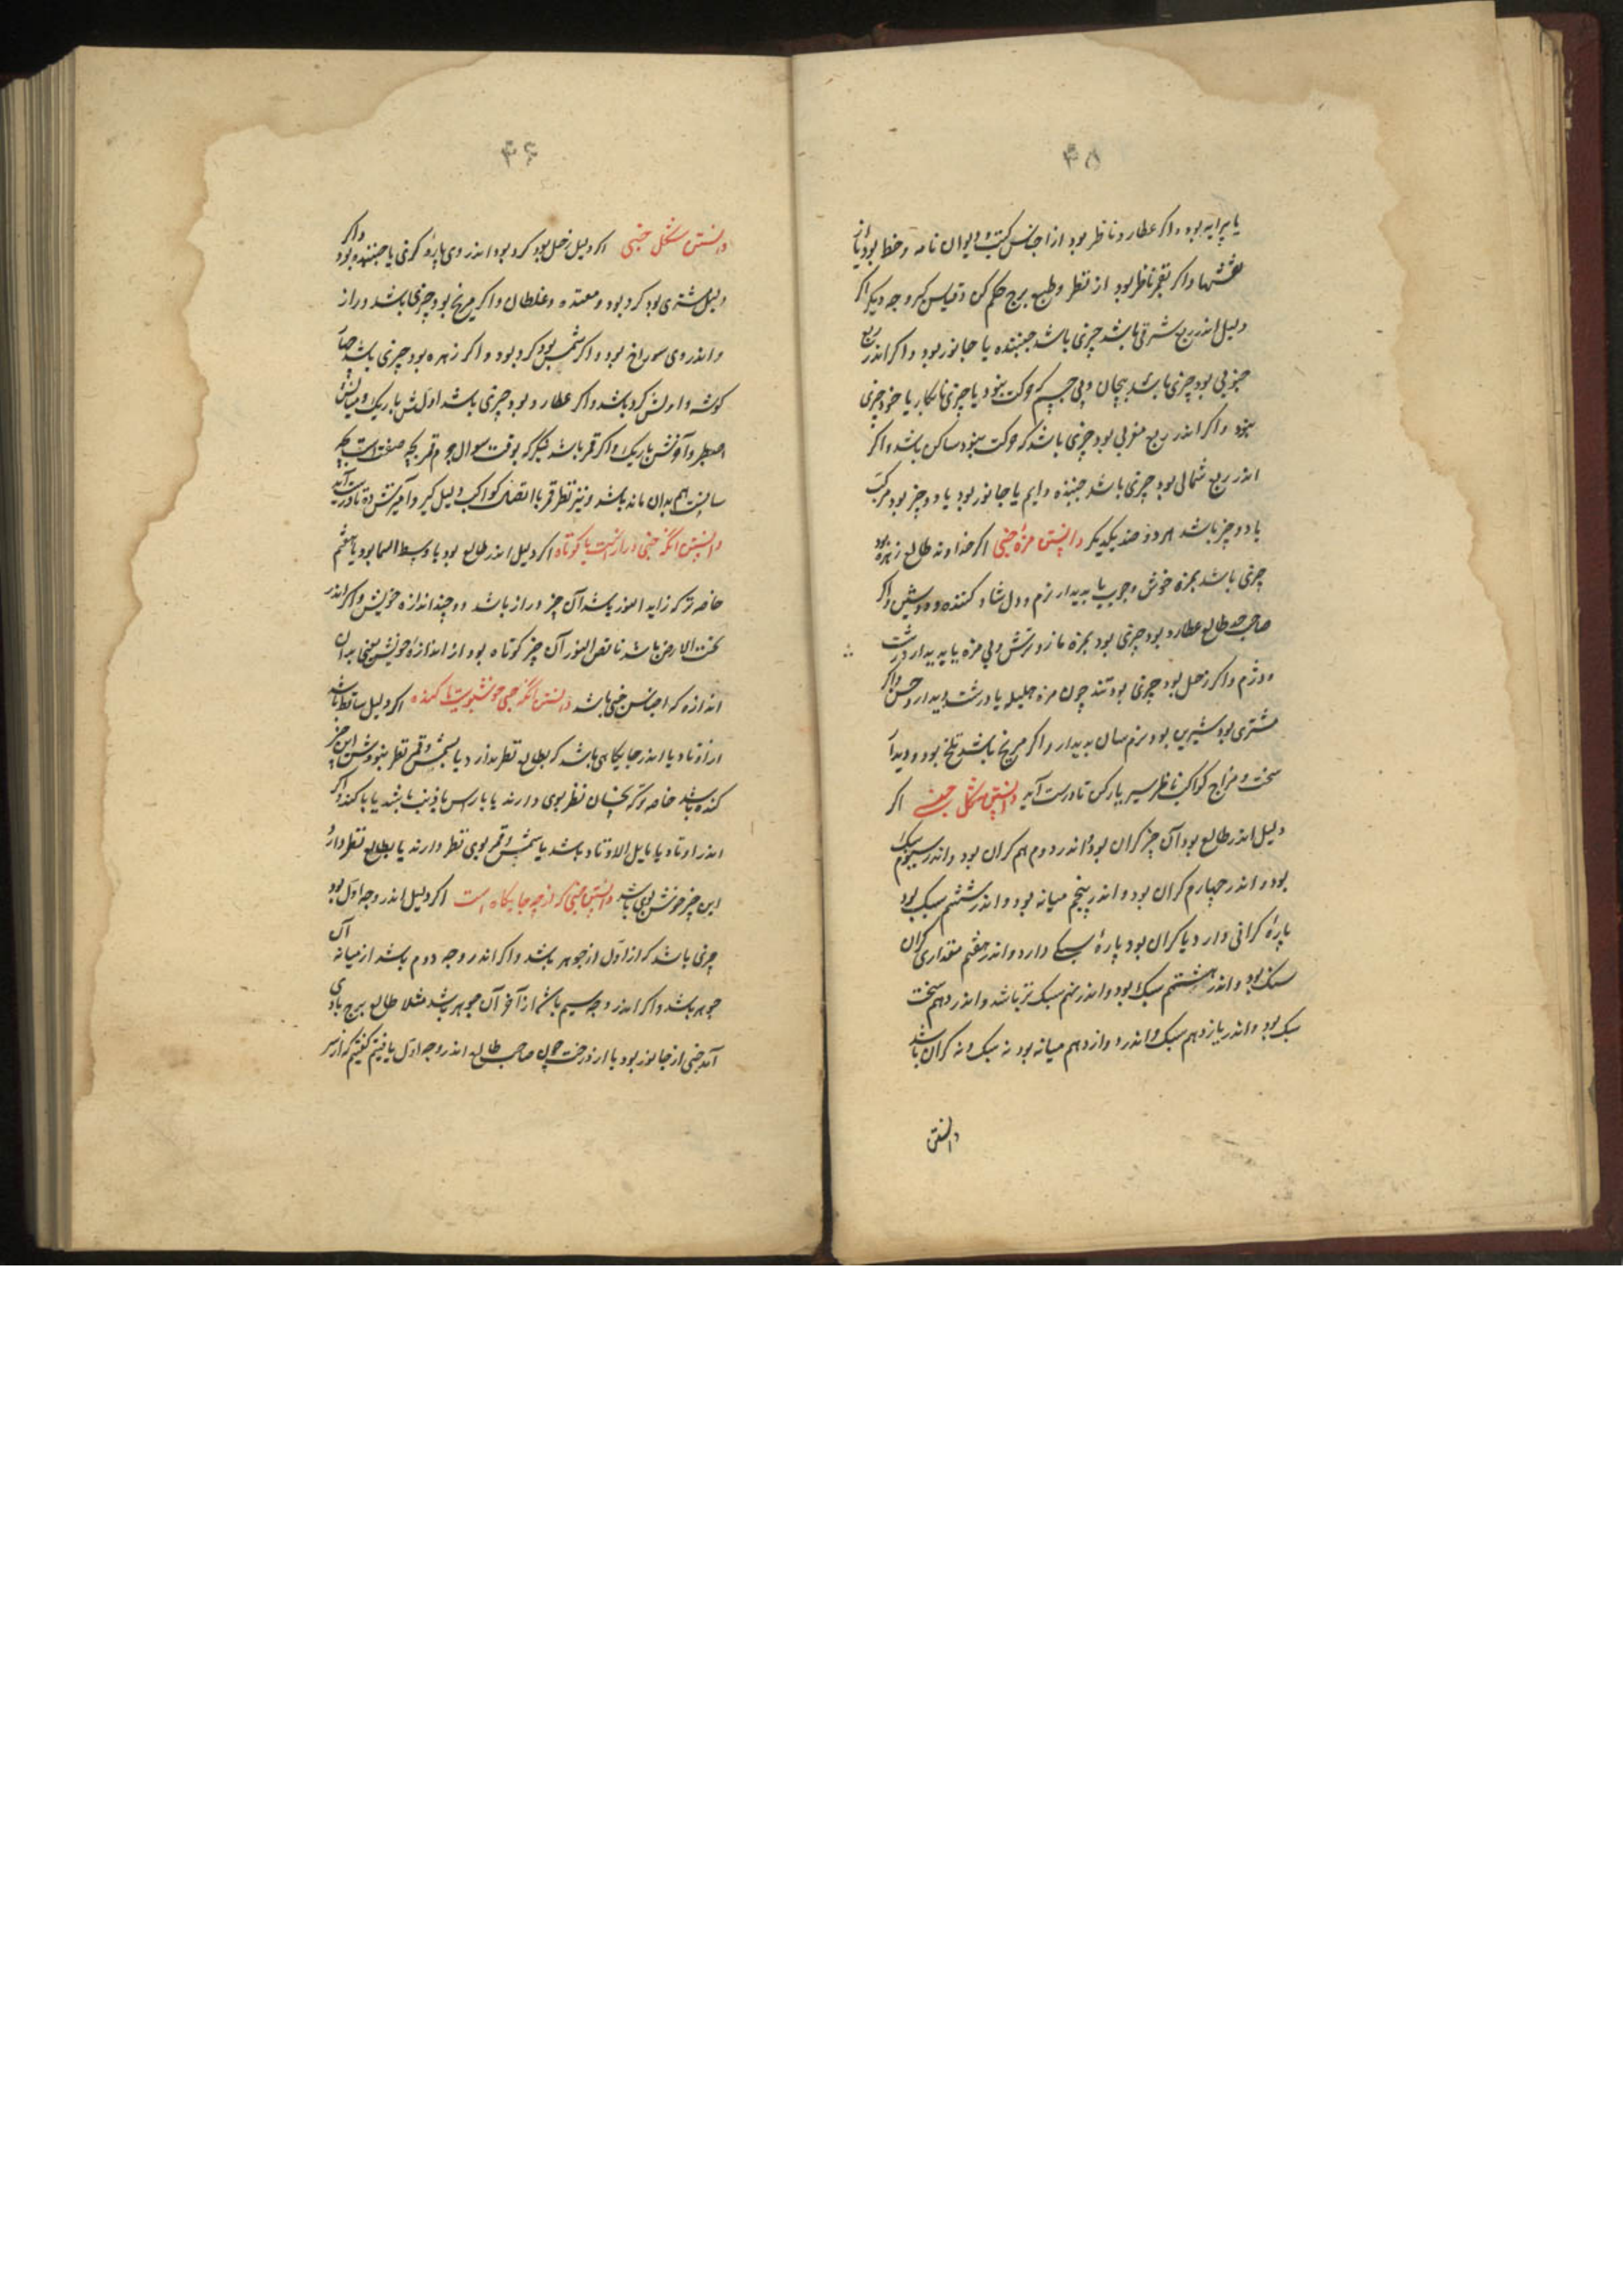 ۳۵
یا پیرایه بود و اکر عطارد ناظر بود از اجناس کتب و دیوان نامه و خط بود یا از
نقشها و اکر بقمر ناظر بود از نظر و طبع برج حکم کن و قیاس کیر وجه دیکر اکر
دلیل اندر ربع شرقی باشد چیزی باشد جنبنده یا جانور بود و اکر اندر ربع
جنوبی بود چیزی باشد بیجان و بی جسم که حرکت نبود یا چیزی نابکار یا خود چیزی
نبود و اکر اندر ربع مغربی بود چیزی باشد که حرکت نبود ساکن باشد و اکر
اندر ربع شمالی بود چیزی باشد جنبنده دایم یا جانور بود یا دو چیز بود مرکب
یا دو چیز باشد هر دو ضد یکدیکر دانستن مزهٔ خبی اکر خداوند طالع زهره بود
چیزی باشد بمزه خوش و چرب یا بدیدار نرم و دل شاد کننده و اکر
صاحب طالع عطارد بود چیزی بود بمزه مازو ترش و بی مزه یا بدیدار درشت
و دژم و اکر زحل بود چیزی بود تند چون مزه هلیله یا درشت بدیدار و خشن و اکر
مشتری بود شیرین بود و نرم سان بدیدار و اکر مریخ باشد تلخ بود و دیدار
سخت و مزاج کواکب ناظر سیر یار کن تا درست آید دانستن خبی اکر
دلیل اندر طالع بود آن چیز کران بود و اندر دوم هم کران بود و اندر سیوم سبک
بود و اندر چهارم کران بود و اندر پنجم میانه بود و اندر ششم سبک بود
پارهٔ کرانی دارد یا کران بود پارهٔ سبکی دارد و اندر هفتم مقداری کران
سنک بود و اندر هشتم سبک بود و اندر نهم سبک تر باشد و اندر دهم سخت
سبک بود و اندر یازدهم سبک و اندر دوازدهم میانه بود نه سبک و نه کران باشد
دانستن
۳۶
دانستن شکل خبی اکر دلیل زحل بود کرد بود اندر وی پارهٔ کژی یا جنبنده بود و اکر
دلیل مشتری بود کرد بود و معتدله و غلطان و اکر مریخ بود چیزی باشد دراز
و اندر وی سوراخ بود و اکر شمس بود کرد بود و اکر زهره بود چیزی باشد چهار
کوشه و اولش کرد باشد و اکر عطارد بود چیزی باشد اولش باریک و میانش
سطبر و آخرش باریک و اکر قمر باشد بنکر که بوقت سوال جرم قمر بچه صفت است
هم بدان مانند باشد و نیز نظر قمر با اتصال کواکب دلیل کیر و آمیزش ده تا درست آید
دانستن آنکه خبی دراز است یا کوتاه اکر دلیل اندر طالع بود یا وسط السما بود یا هفتم
خاصه تر که زاید النور باشد آن چیز دراز باشد دو چند اندازه خویش و اکر اندر
تحت الارض باشد ناقص النور آن چیز کوتاه بود از اندازهٔ خویش یعنی بدان
اندازه که اجناس خبی باشد دانستن آنکه خبی خوشبوی است یا کنده اکر دلیل ساقط باشد
از اوتاد یا اندر جایکاهی باشد که بطالع نظر ندارد یا بشمس و قمر نظر نبودش این چیز
کنده باشد خاصه تر که نحسان نظر بوی دارند یا با راس یا ذنب باشد و اکر
اندر اوتاد یا مایل الاوتاد باشد یا شمس و قمر بوی نظر دارند یا بطالع نظر دارد
این چیز خوش بوی باشد دانستن خبی که از چه جایکاه است اکر دلیل اندر وجه اول بود
چیزی باشد که از اول از جوهر باشد و اکر اندر وجه دوم باشد از میانه آن
جوهر باشد و اکر اندر وجه سیم باشد از آخر آن جوهر باشد مثلا طالع برج بادی
آمد خبی از جانور بود یا از درخت چون صاحب طالع اندر وجه اول یافتیم کفتیم که از سر